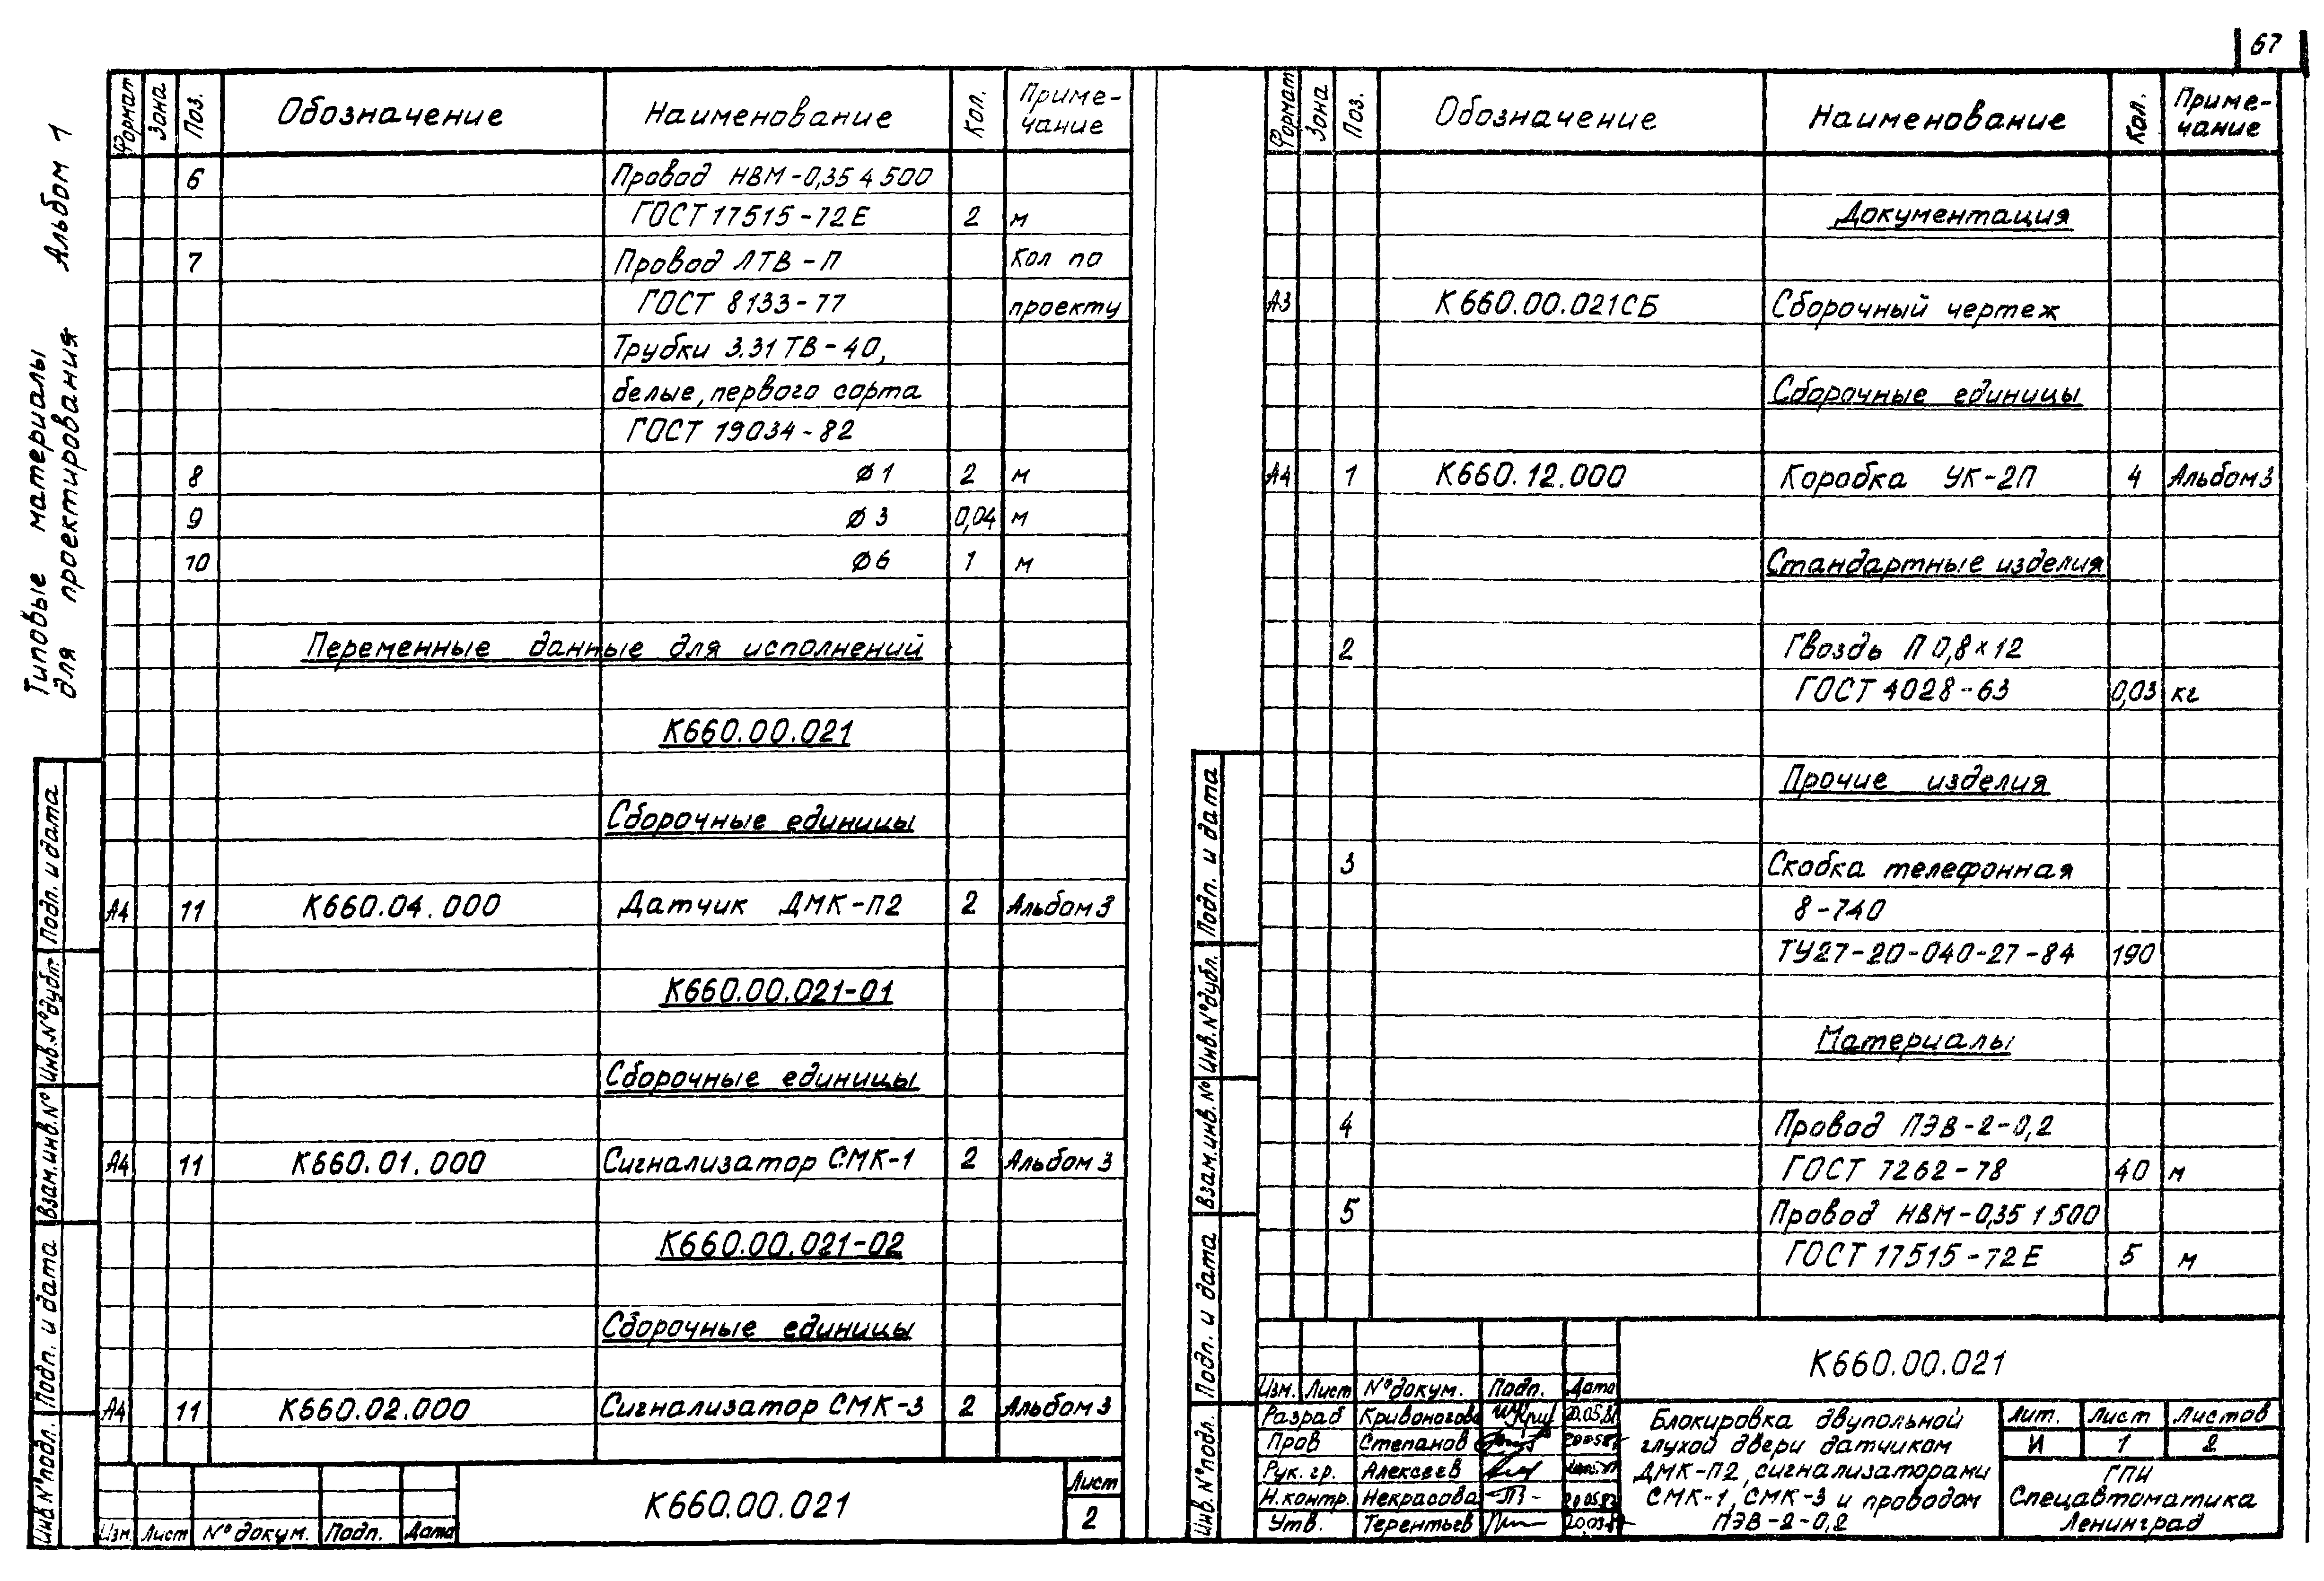 67
Типовые материалы
для проектирования Альбом 1
Формат Зона Поз. Обозначение Наименование Кол. Приме-
чание
6 Провод НВМ-0,35 4 500
ГОСТ 17515-72Е 2 м
7 Провод ЛТВ-П Кол по
ГОСТ 8133-77 проекту
Трубки 3.31 ТВ-40,
белые, первого сорта
ГОСТ 19034-82
8 Ø1 2 м
9 Ø3 0,04 м
10 Ø6 1 м
Переменные данные для исполнений
К660.00.021
Сборочные единицы
А4 11 К660.04.000 Датчик ДМК-П2 2 Альбом 3
К660.00.021-01
Сборочные единицы
А4 11 К660.01.000 Сигнализатор СМК-1 2 Альбом 3
К660.00.021-02
Сборочные единицы
А4 11 К660.02.000 Сигнализатор СМК-3 2 Альбом 3
Инв N°подл. Подп. и дата Взам.инв.N° Инв.N°дубл. Подп. и дата
Изм. Лист N°докум. Подп. Дата
К660.00.021
Лист
2
Формат Зона Поз. Обозначение Наименование Кол. Приме-
чание
Документация
А3 К660.00.021СБ Сборочный чертеж
Сборочные единицы
А4 1 К660.12.000 Коробка УК-2П 4 Альбом 3
Стандартные изделия
2 Гвоздь П 0,8×12
ГОСТ 4028-63 0,03 кг
Прочие изделия
3 Скобка телефонная
8-740
ТУ27-20-040-27-84 190
Материалы
4 Провод ПЭВ-2-0,2
ГОСТ 7262-78 40 м
5 Провод НВМ-0,35 1 500
ГОСТ 17515-72Е 5 м
Инв. N°подл. Подп. и дата Взам.инв.N° Инв.N°дубл. Подп. и дата
К660.00.021
Изм. Лист N°докум. Подп. Дата
Разраб Кривоногова
Пров Степанов
Рук. гр. Алексеев
Н.контр. Некрасова
Утв. Терентьев
Блокировка двупольной
глухой двери датчиком
ДМК-П2, сигнализаторами
СМК-1, СМК-3 и проводом
ПЭВ-2-0,2
Лит. Лист Листов
И 1 2
ГПИ
Спецавтоматика
Ленинград